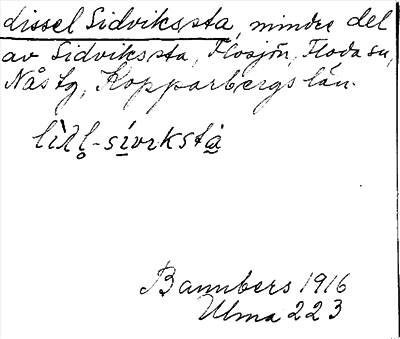 dissel Sidvikssta, mindre del
av Sidvikssta, Flosjön, Floda sn,
Nås tg, Kopparbergs län.
lìll-sívrkstà
Bannbers 1916
Ulma 223